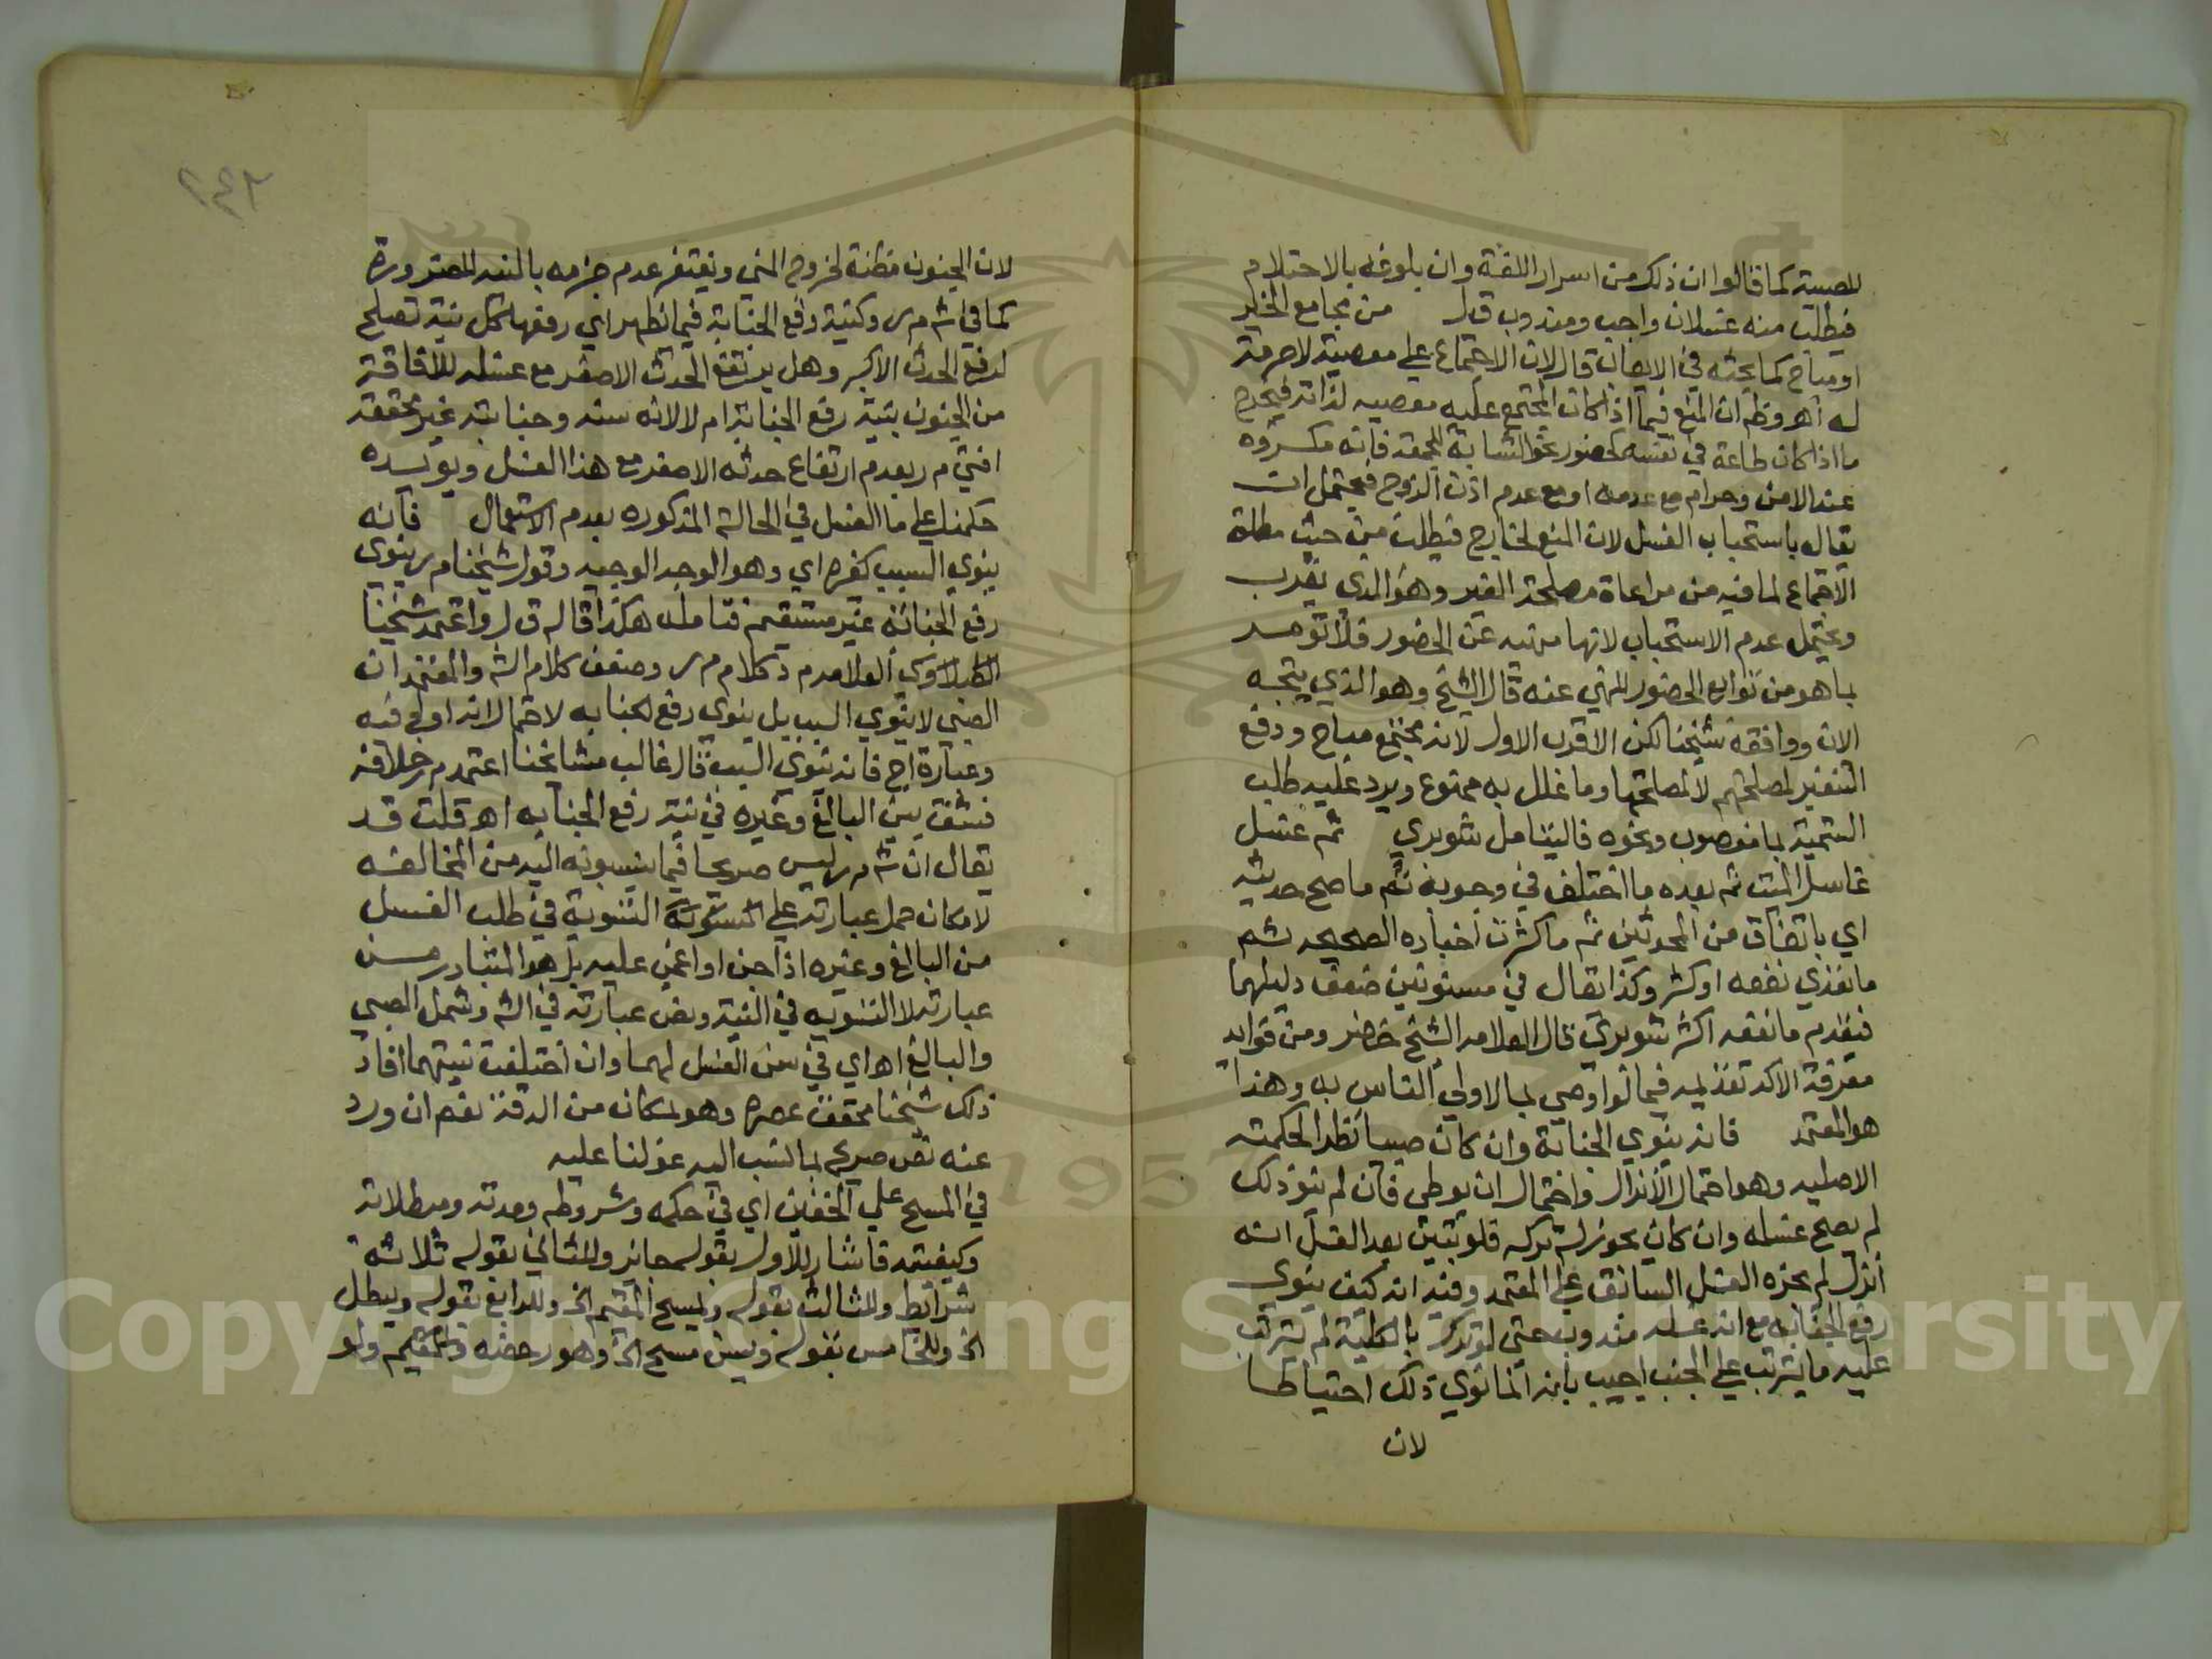 للصبية كما قالوا ان ذلك من اسرار اللغة وان بلوغه بالاحتلام
فيطلب منه غسلان واجب ومندوب ق ل من مجامع الخير
او مباح كما بحثه في الايعاب قال لان الاجتماع على معصية لا حرمة
له اهـ وظ ان المنع فيما اذا كان المجتمع عليه معصيه لذاته فيخرج
ما اذا كان طاعة في نفسه كحضور نحو الشابة للجمعة فانه مكروه
عند الامن وحرام مع عدمه او مع عدم اذن الزوج فيحتمل ان
يقال باستحباب الغسل لان المنع لخارج فيطلب من حيث مطلق
الاجتماع لما فيه من مراعاة مصلحة الغير وهو الذي يقرب
ويحتمل عدم الاستحباب لانها منهيه عن الحضور فلا تؤمر
بما هو من توابع الحضور المنهي عنه قال الشيخ وهو الذي يتجه
الان ووافقه شيخنا لكن الاقرب الاول لانه مجتمع مباح ودفع
التنفير لمصلحتهم لا لمصلحتها وما علل به ممنوع ويرد عليه طلب
التسمية بما مغصوب ونحوه فاليتامل شوبري ثم غسل
غاسل الميت ثم بعده ما اختلف في وجوبه ثم ما صح حديثه
اي باتفاق من المحدثين ثم ما كثرت اخباره الصحيحه ثم
ما تعدي نفعه او كثر وكذا يقال في مسنونين ضعف دليلهما
فيقدم ما نفعه اكثر شوبري قال العلامه الشيخ خضر ومن فوايد
معرفة الاكد تقديمه فيما لو اوصي بما لاولي الناس به وهذا
هو المعتمد فانه ينوي الجنابة وان كان صبيا نظرا لحكمته
الاصليه وهو احتمال الانزال واحتمال ان يوطى فان لم ينو ذلك
لم يصح غسله وان كان يجوز له تركه فلو تبين بعد الغسل انه
انزل لم يجزه الغسل السابق على المعتمد وفيه انه كيف ينوى
رفع الجنابه مع انه غسله مندوب حتى لو ترك بالكلية لم يترتب
عليه ما يترتب علي الجنب اجيب بانه انما نوي ذلك احتياطا
لان
٢٤٣
لان الجنون مظنة لخروج المني ويغتفر عدم جزمه بالنيه للضرورة
كما في ش م ر وكنية رفع الجنابة فيما يظهر اي رفعها كل نية تصلح
لرفع الحدث الاكبر وهل يرتفع الحدث الاصغر مع غسله للافاقة
من الجنون بنية رفع الجنابة ام لا لانه سنه وجنابته غير محققه
افتي م ر بعدم ارتفاع حدثه الاصغر مع هذا الغسل ويؤيده
حكمنا على ما الغسل في الحالة المذكوره بعدم الاستعمال فانه
ينوي السبب كغيره اي وهو الوجه الوجيه وقول شيخنا م ر ينوى
رفع الجنابة غير مستقيم فتامله هكذا قاله ق ل واعتمد شيخنا
الطبلاوي العلامه م د كلام م ر وضعف كلام الش والمعتمد ان
الصبي لا ينوي السبب بل ينوى رفع الجنابه لاحتمال انه اولج فيه
وعبارة اج فانه ينوي السبب قال غالب مشائخنا اعتمد م ر خلافه
فسوى بين البالغ وغيره في نية رفع الجنابه اهـ قلت قد
يقال ان ش م ر ليس صريحا فيما ينسبونه اليه من المخالفه
لامكان حمل عبارته على التسوية في طلب الغسل
من البالغ وغيره اذا جن او اغمي عليه بل هو المتبادر من
عبارته لا التسويه في النية ونص عبارته في الش وشمل الصبي
والبالغ اهـ اي في سن الغسل لهما وان اختلفت نيتهما افاد
ذلك شيخنا محقق عصره وهو بمكان من الدقة نعم ان ورد
عنه نص صريح بما نسب اليه عولنا عليه
في المسح علي الخفين اي في حكمه وشروطه ومدته ومبطلاته
وكيفيته فاشار للاول بقوله جائز وللثاني بقوله ثلاثة
شرائط وللثالث بقوله ويمسح المقيم الخ وللرابع بقوله ويبطل
الخ وللخامس بقوله ويسن مسح الخ وهو رخصه وللمقيم ولو
Copyright © King Saud University
1957